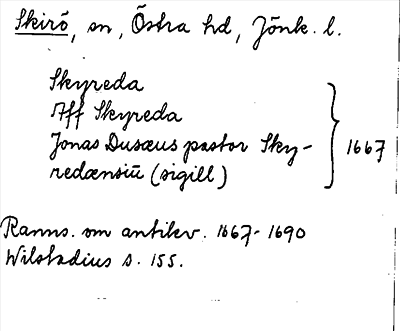 Skirö, sn, Östra hd, Jönk. l.
Skyreda
Aff Skyreda
Jonas Dusæus pastor Sky-
redænsiū (sigill)
1667
Ranns. om antikv. 1667-1690
Wilstadius s. 155.